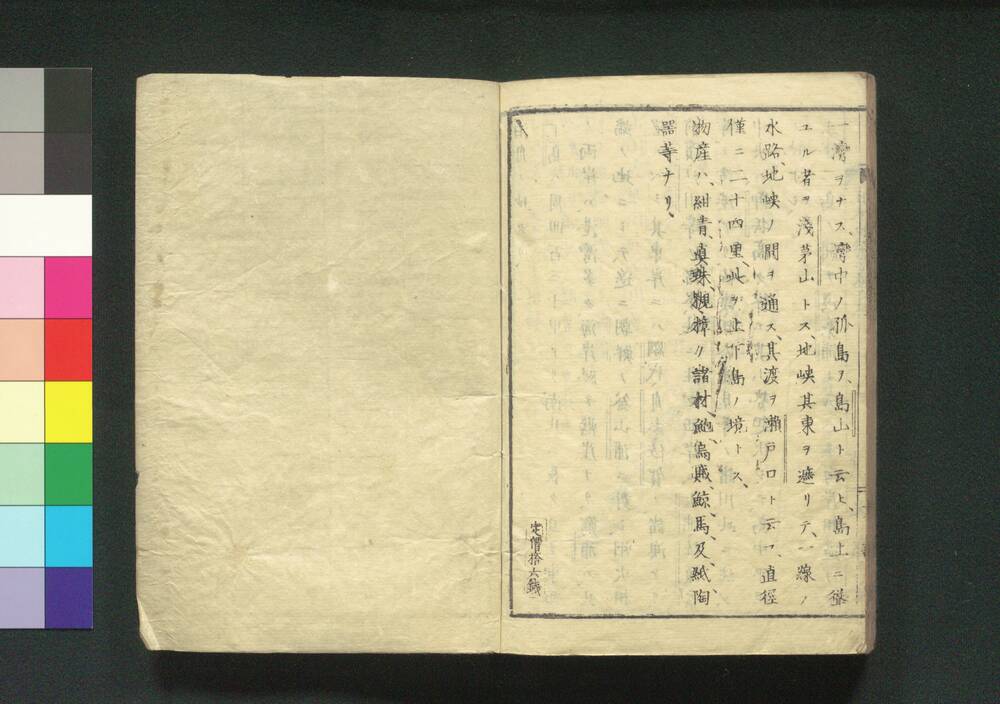 一灣ヲナス、灣中ノ孤島ヲ、島山ト云ヒ、島上ニ聳
ユル者ヲ淺茅山トス、地峽其東ヲ遮リテ、一線ノ
水路、地峽ノ間ヲ通ス、其渡ヲ瀬戸口ト云フ、直徑
僅ニ二十四里、此ヲ上下島ノ境トス、
物産ハ、紺青、眞珠、樫、樟ノ諸材、鮑、烏賊、鯨、馬、及紙陶
器等ナリ、
定價拾六錢